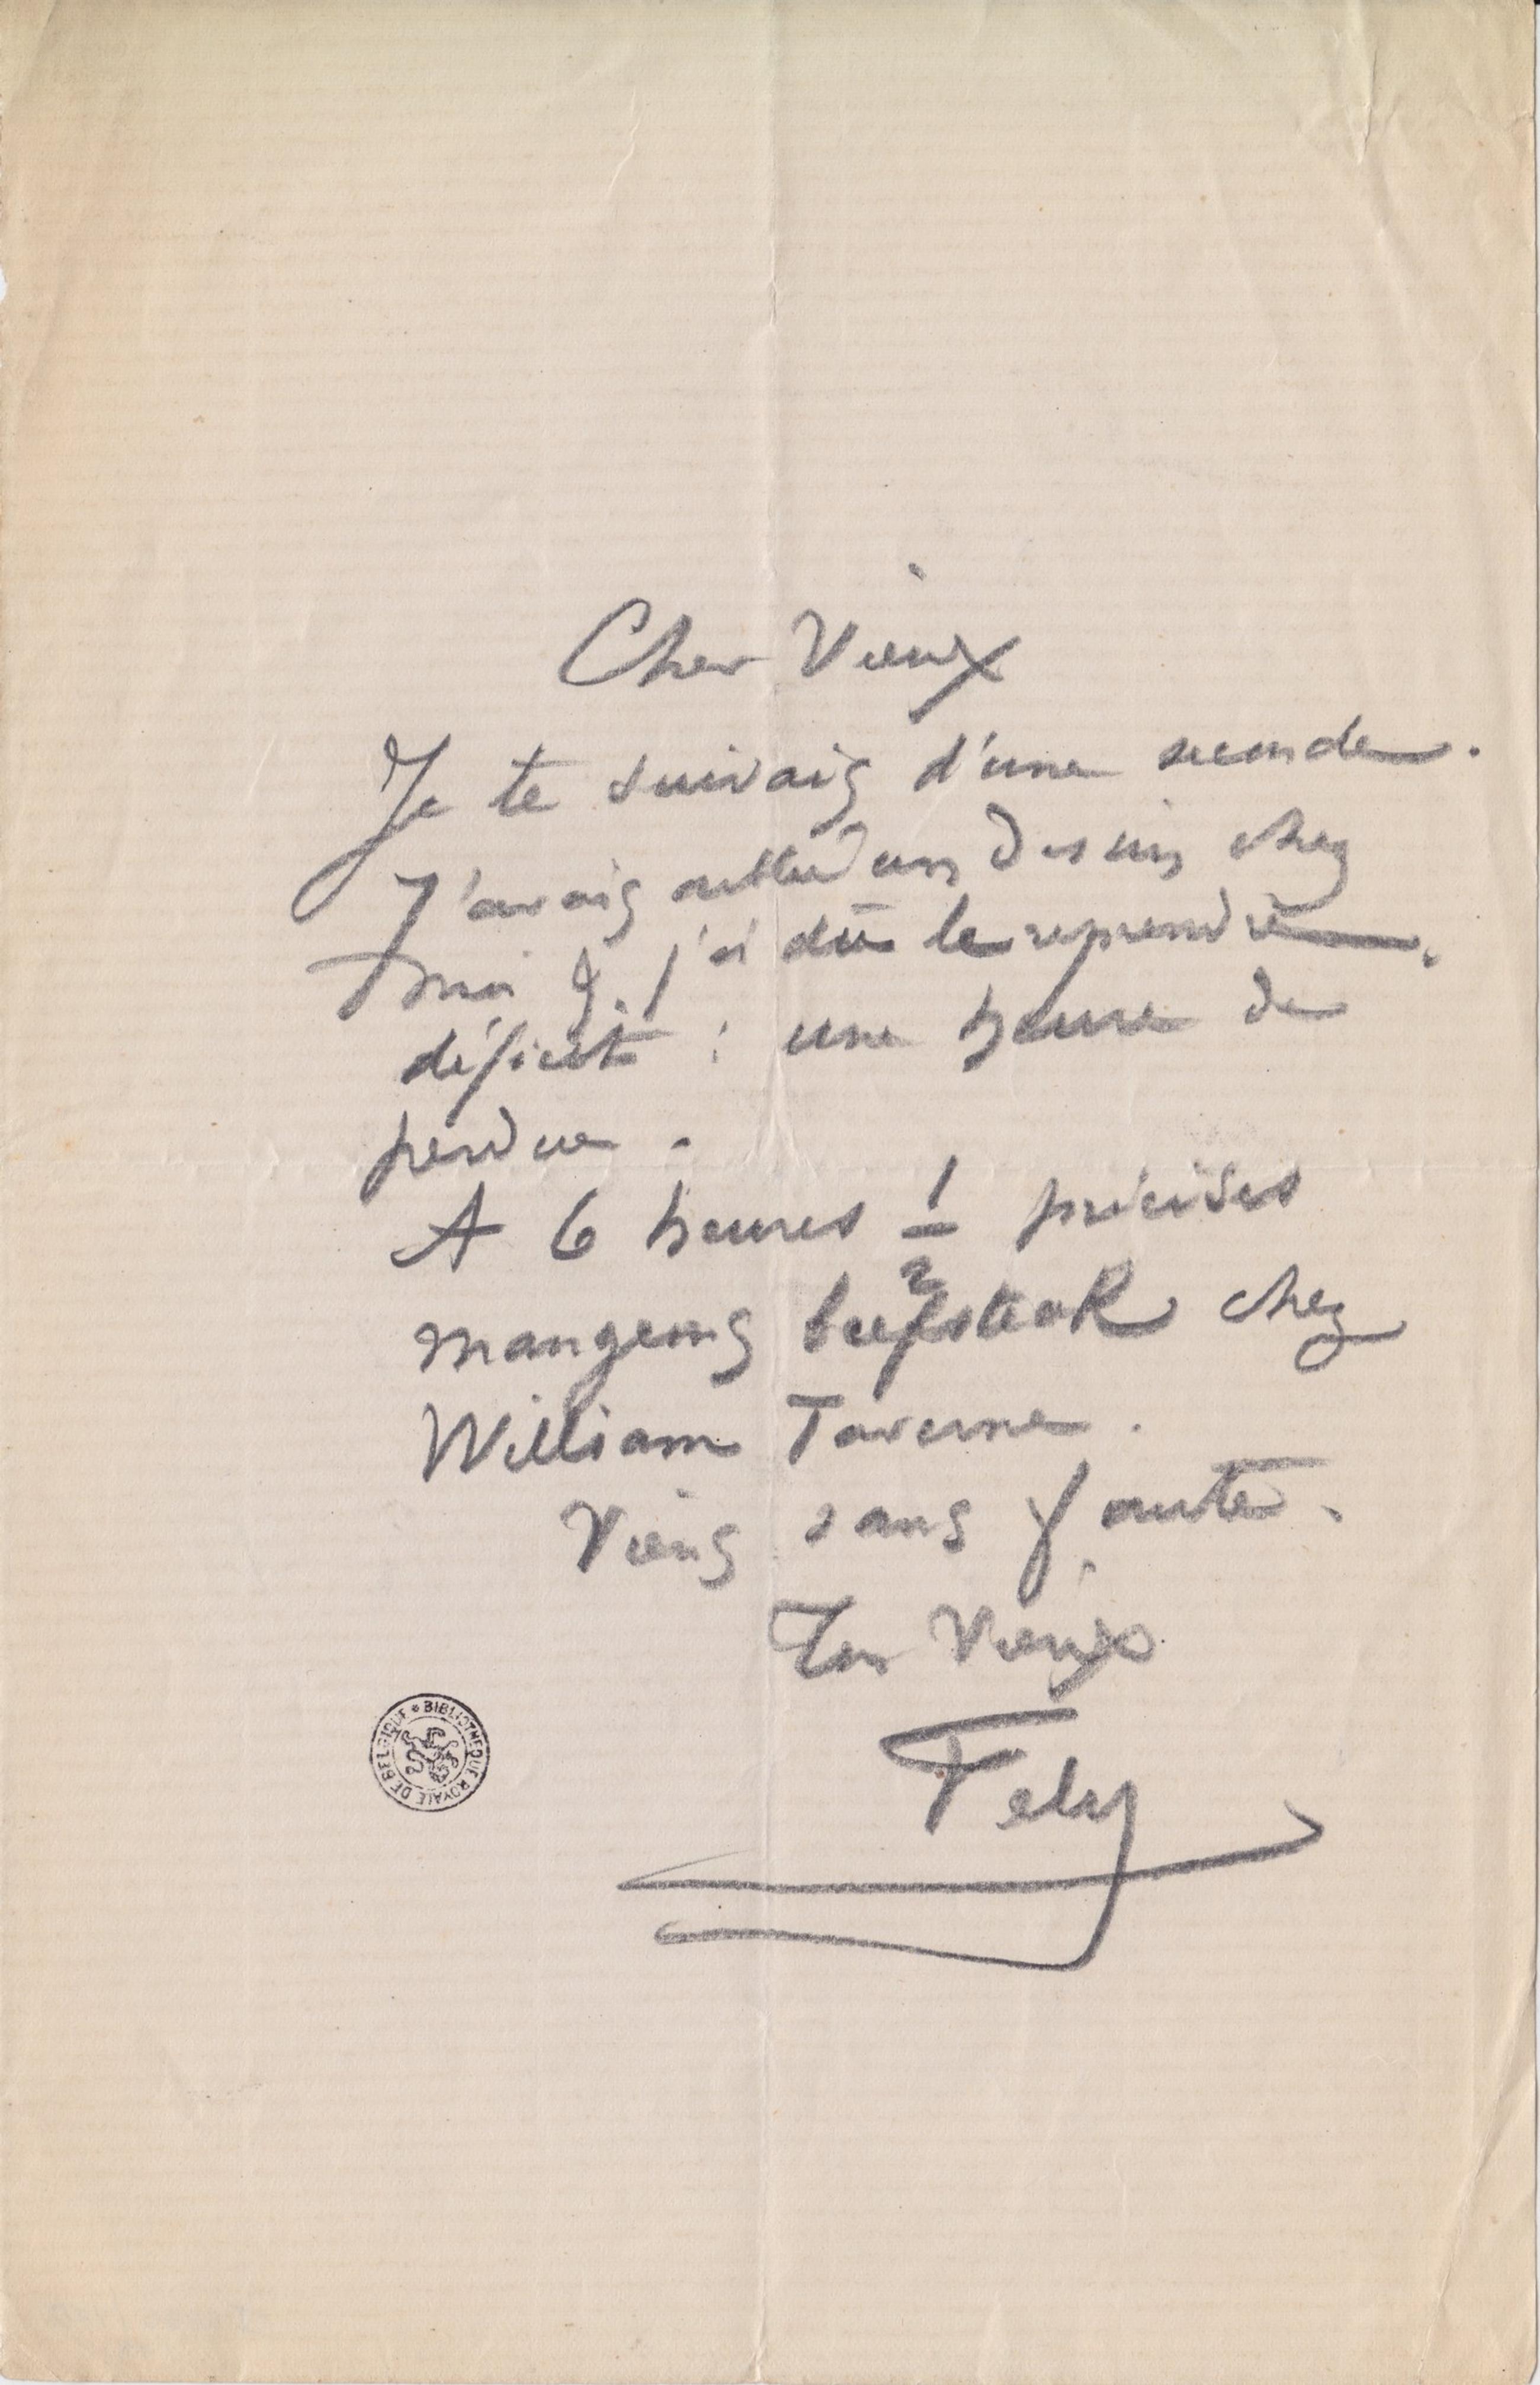 Cher Vieux
Je te suivais d'une seconde.
J'avais oublié un dessin chez
moi & j'ai dû le reprendre.
déficit : une heure de
perdue.
A 6 heures 1/2 précises
mangeons beefsteak chez
William Taverne.
Viens sans faute.
Ton Vieux
Fély
BIBLIOTHEQUE ROYALE DE BELGIQUE